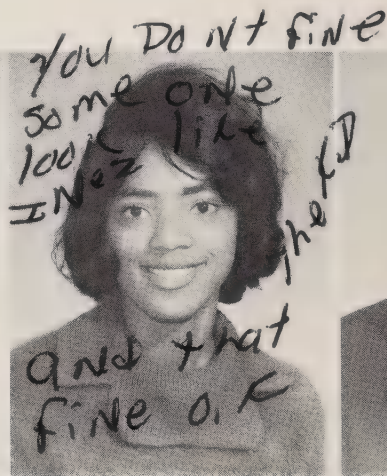 You Dont fiNe
some one
look like
INez
and that
fiNe O.K